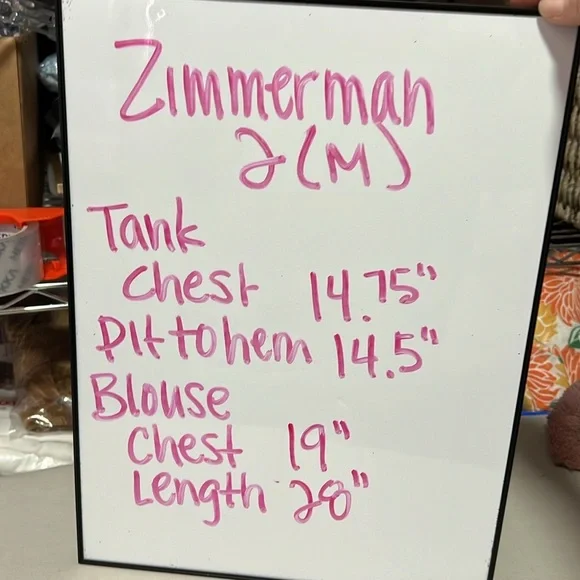 Zimmerman
2 (M)
Tank
Chest 14.75"
Pit to hem 14.5"
Blouse
Chest 19"
Length 28"